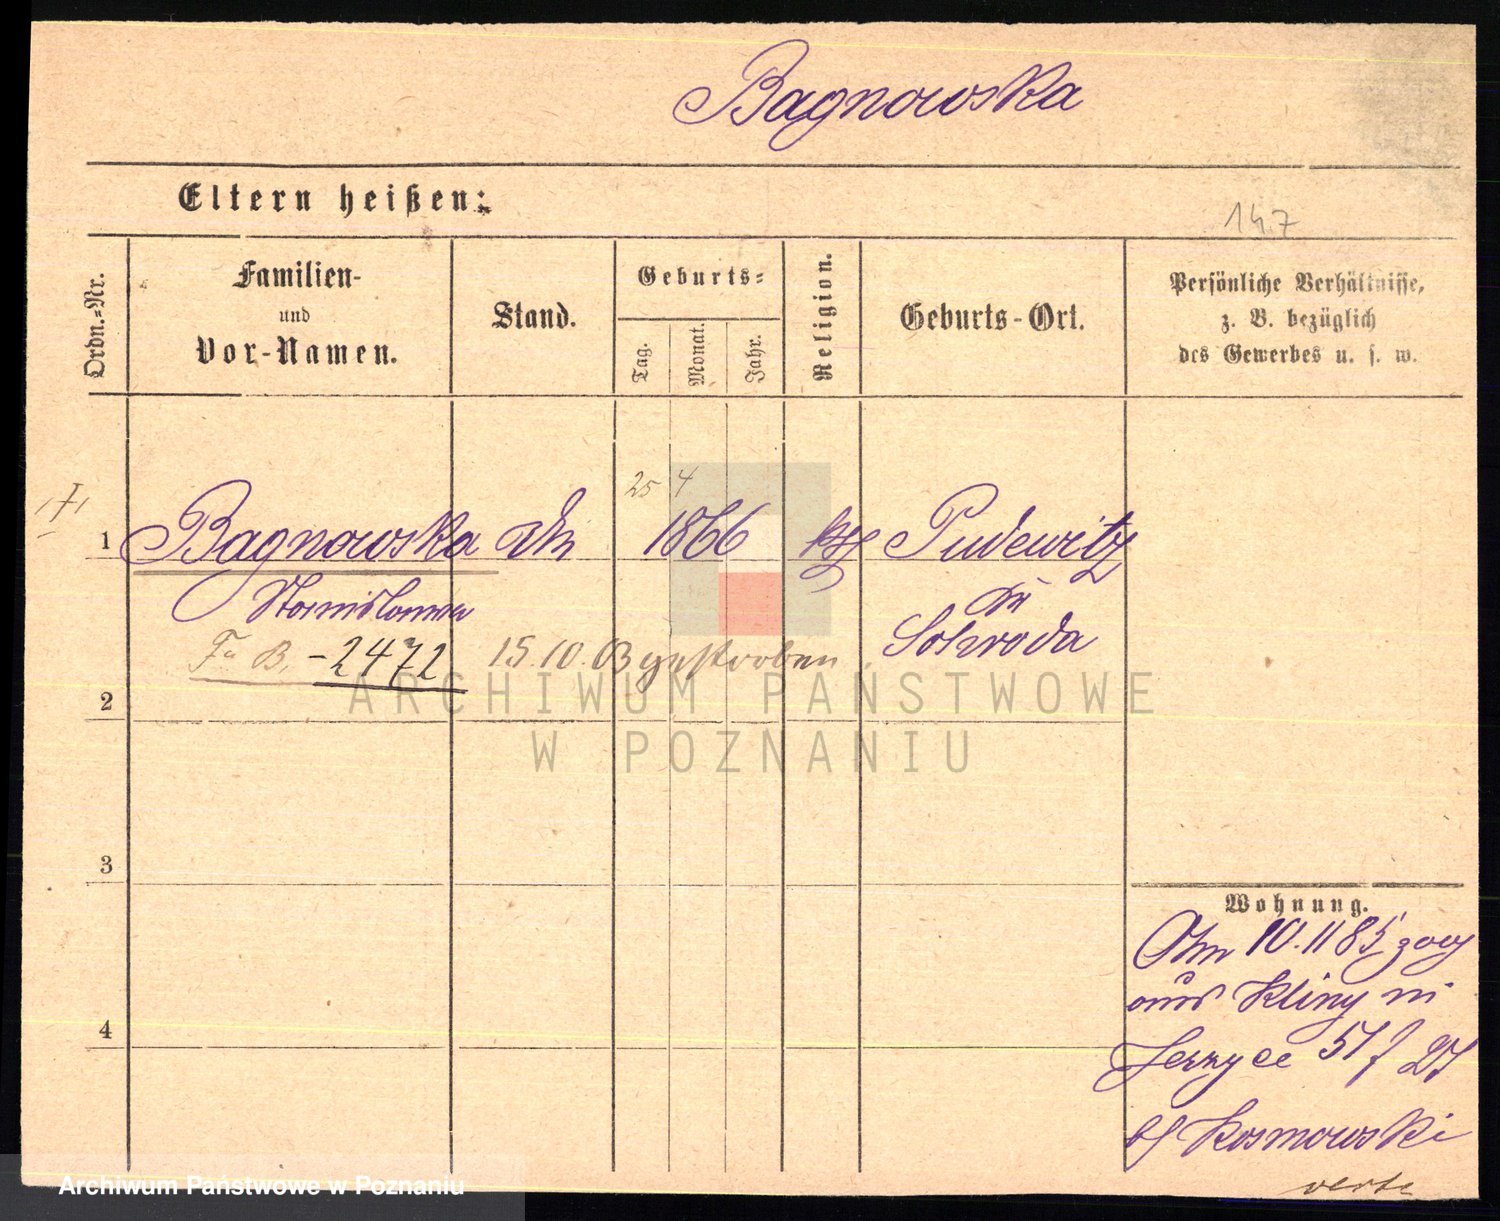 Bagnowska
Eltern heißen:
147
Ordn.=Nr.
Familien-
und
Vor-Namen.
Stand.
Geburts=
Tag.
Monat.
Jahr.
Religion.
Geburts-Ort.
Persönliche Verhältnisse,
z. B. bezüglich
des Gewerbes u. s. w.
25 4
1 Bagnowska 1866 Pudewitz
Stanislawa
Schroda
B. -2472 15.10. gestorben
2
3
4
Wohnung.
10.11 85 zog
aus Kliny in
Jerzyce 51
Kosmowski
verte
ARCHIWUM PAŃSTWOWE
W POZNANIU
Archiwum Państwowe w Poznaniu